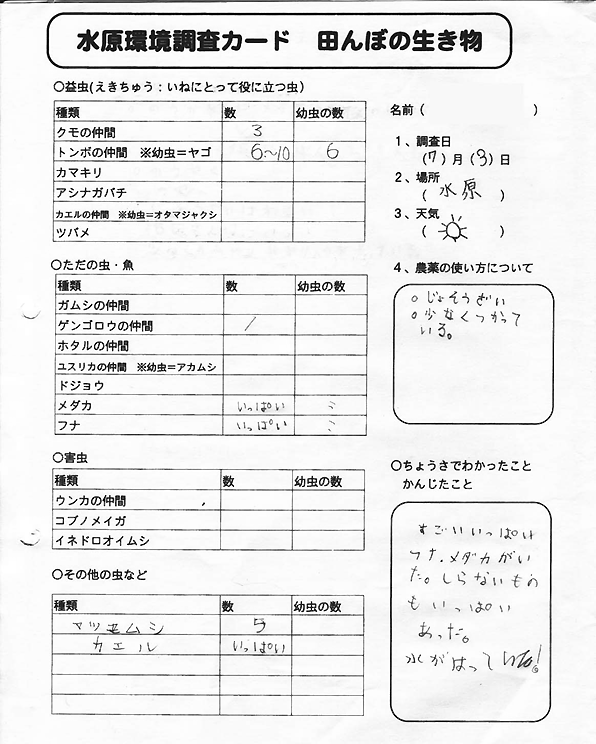 水原環境調査カード　田んぼの生き物
○益虫(えきちゅう：いねにとって役に立つ虫)
種類 数 幼虫の数
クモの仲間 3
トンボの仲間　※幼虫＝ヤゴ 6～10 6
カマキリ
アシナガバチ
カエルの仲間　※幼虫＝オタマジャクシ
ツバメ
○ただの虫・魚
種類 数 幼虫の数
ガムシの仲間
ゲンゴロウの仲間 /
ホタルの仲間
ユスリカの仲間　※幼虫＝アカムシ
ドジョウ
メダカ いっぱい
フナ いっぱい
○害虫
種類 数 幼虫の数
ウンカの仲間
コブノメイガ
イネドロオイムシ
○その他の虫など
種類 数 幼虫の数
マツモムシ 5
カエル いっぱい
名前（　　）
1、調査日
(7)月(3)日
2、場所
(水原)
3、天気
(　　)
4、農薬の使い方について
○じょそうざい
○少なくつかって
いる。
○ちょうさでわかったこと
かんじたこと
すごいいっぱい
フナ.メダカがい
た。しらないもの
もいっぱい
あった。
水がはっている!